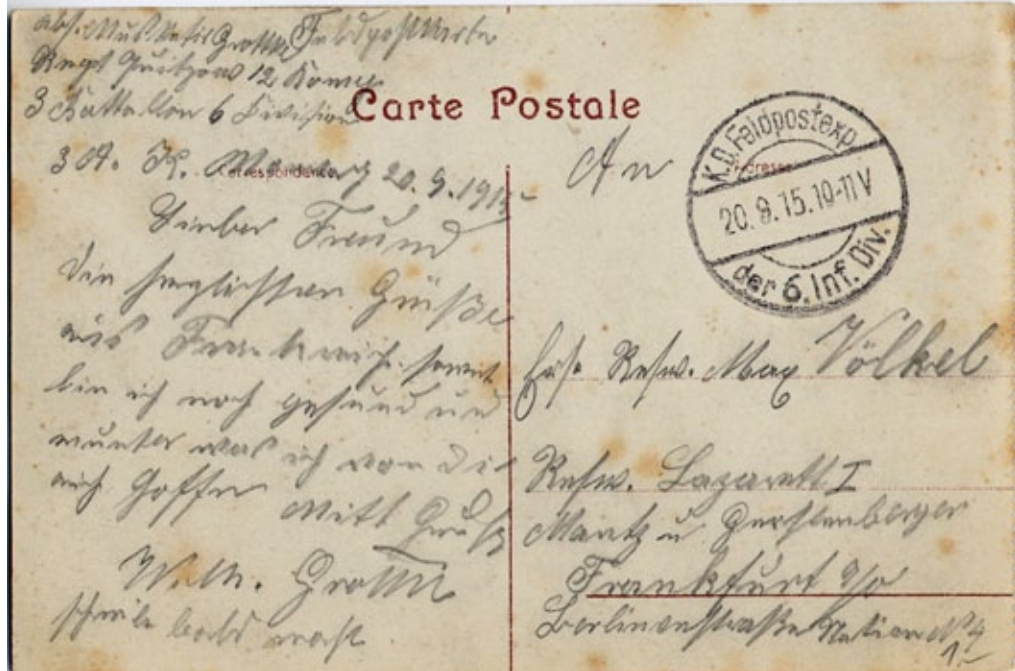 Abs. Musketir Feldpostkarte
Regt Quitzow 12 Komp.
3 Battallion 6 Division
Carte Postale
3 A. K. 20.9.1915
Correspondance
Lieber Freund
Die herzlichsten Grüße
aus Frankreich. soweit
bin ich noch gesund und
munter was ich von dir
auch hoffe Mitt Gruß
Wilh.
schreibe bald mahl.
An
Adresse
K.D. Feldpostexp.
20.9.15.10-11V
der 6. Inf. Div.
Ers. Resrv. Max Völkel
Resrv. Lazarett I
u Gerstenberger
Frankfurt a/o
Berlinerstraße Station No 4